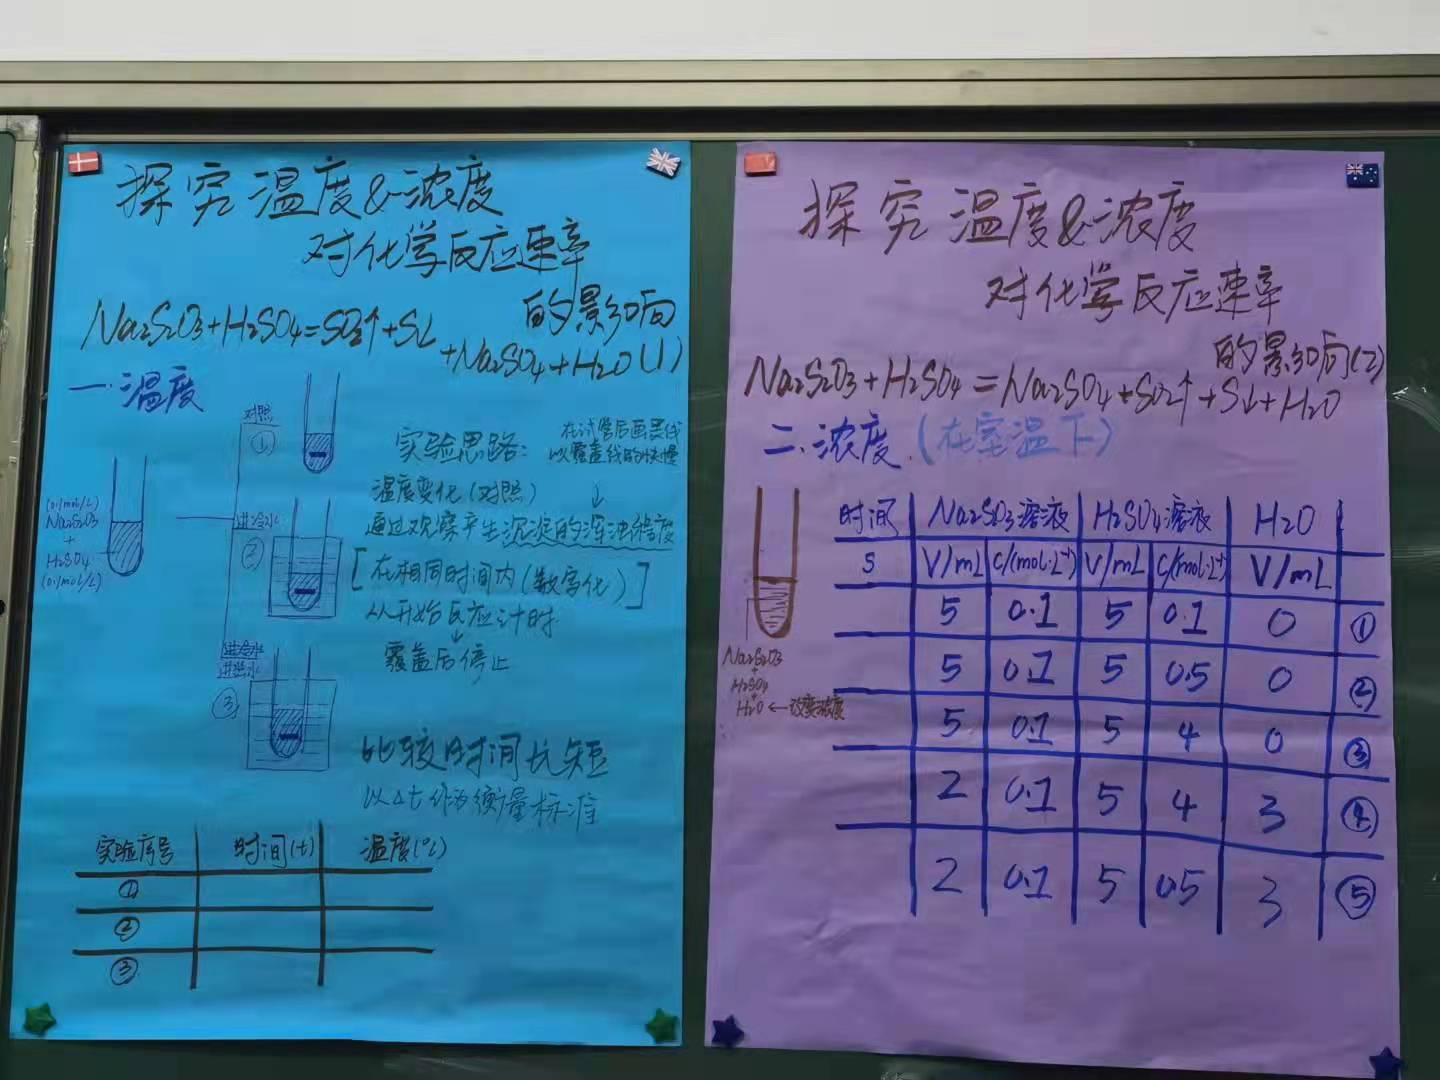 探究温度&浓度
对化学反应速率
的影响
Na2S2O3+H2SO4=SO2↑+S↓
+Na2SO4+H2O(1)
一.温度
对照
①
(0.1mol/L)
Na2S2O3
+
H2SO4
(0.1mol/L)
进冷水
②
进热水
③
实验思路:
在试管后画黑线
以覆盖线的快慢
↓
温度变化(对照)
通过观察产生沉淀的浑浊程度
[在相同时间内(数字化)]
从开始反应计时
↓
覆盖后停止
比较时间长短
以Δt作为衡量标准
实验序号 时间(t) 温度(℃)
①
②
③
探究温度&浓度
对化学反应速率
的影响(2)
Na2S2O3+H2SO4=Na2SO4+SO2↑+S↓+H2O
二.浓度.(在室温下)
Na2S2O3
+
H2SO4
+
H2O←改变浓度
时间 Na2S2O3溶液 H2SO4溶液 H2O
S V/mL C/(mol·L⁻¹) V/mL C/(mol·L⁻¹) V/mL
5 0.1 5 0.1 0 ①
5 0.1 5 0.5 0 ②
5 0.1 5 4 0 ③
2 0.1 5 4 3 ④
2 0.1 5 0.5 3 ⑤